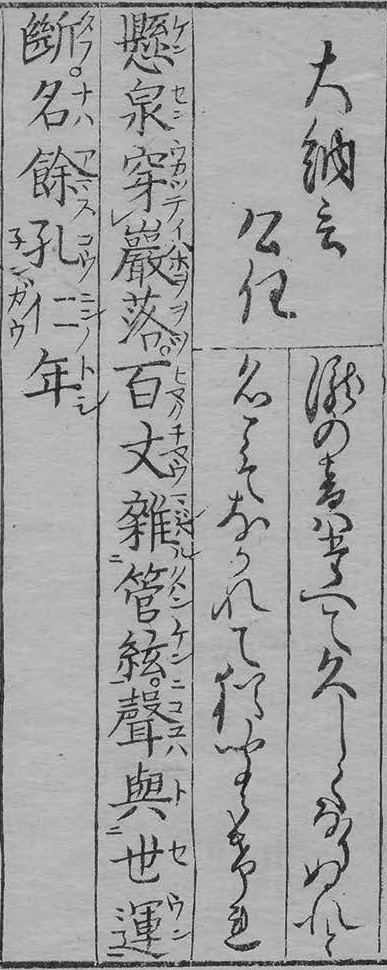 大納言
公任
瀧の音はたえて久しくなりぬれと
名こそなかれて猶聞えけれ
懸泉穿巖落百丈雜管絃聲與世運
斷名餘孔仁年